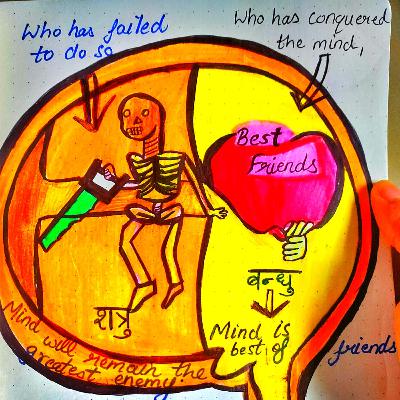 Who has failed
to do so
Who has conquered
the mind,
Best
Friends
शत्रु
बन्धु
Mind will remain the
greatest enemy.
Mind is
best of friends